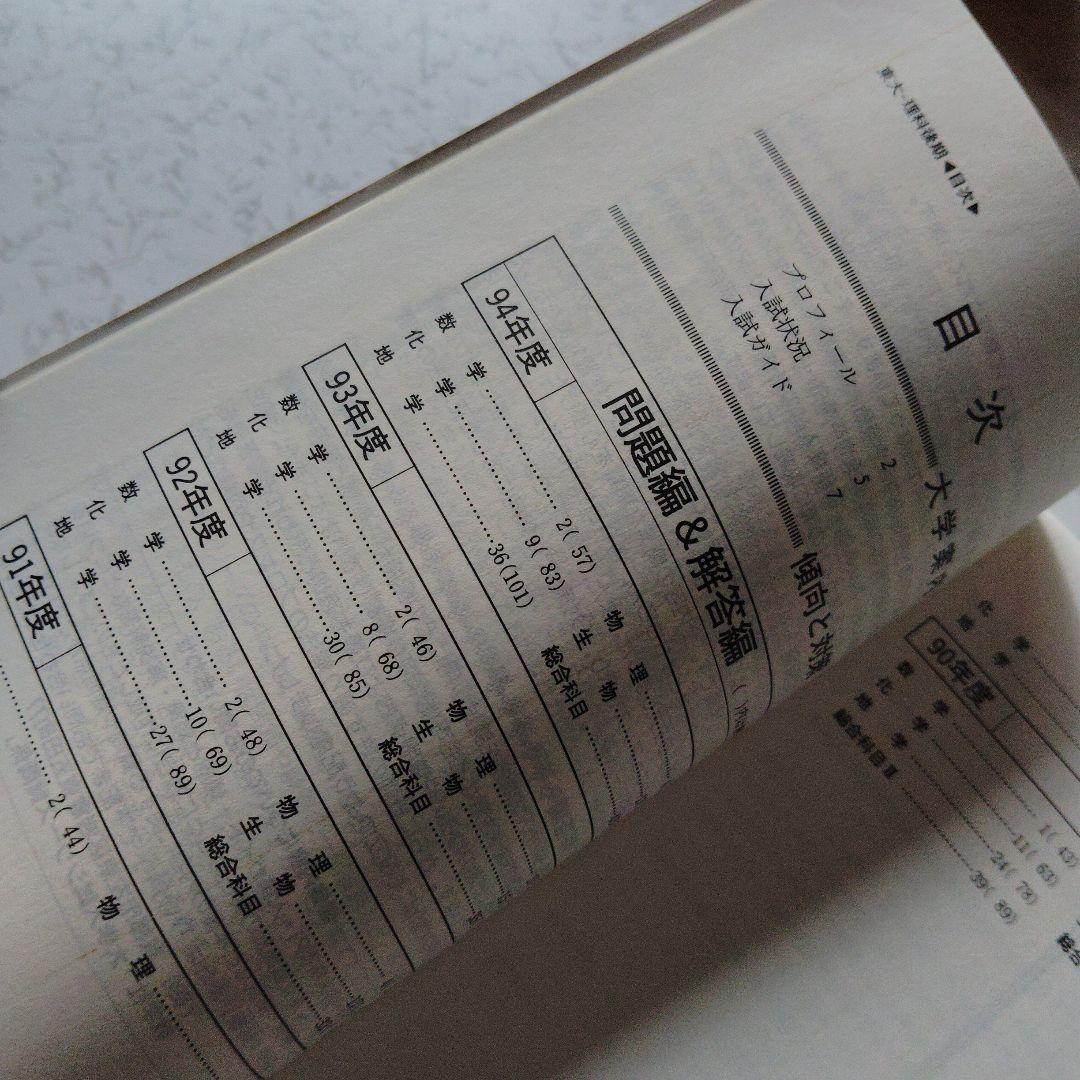 東大-理科後期◀目次▶
目次
大学案内
プロフィール 2
入試状況 5
入試ガイド 7
傾向と対策
問題編&解答編
94年度
数学 2(57)
化学 9(83)
地学 36(101)
物理
生物
総合科目
93年度
数学 2(46)
化学 8(68)
地学 30(85)
物理
生物
総合科目
92年度
数学 2(48)
化学 10(69)
地学 27(89)
物理
生物
総合科目
91年度
2(44)
物理
化学
地学
90年度
数学 1(43)
化学 11(63)
地学 24(78)
総合科目Ⅱ 39(89)
総合